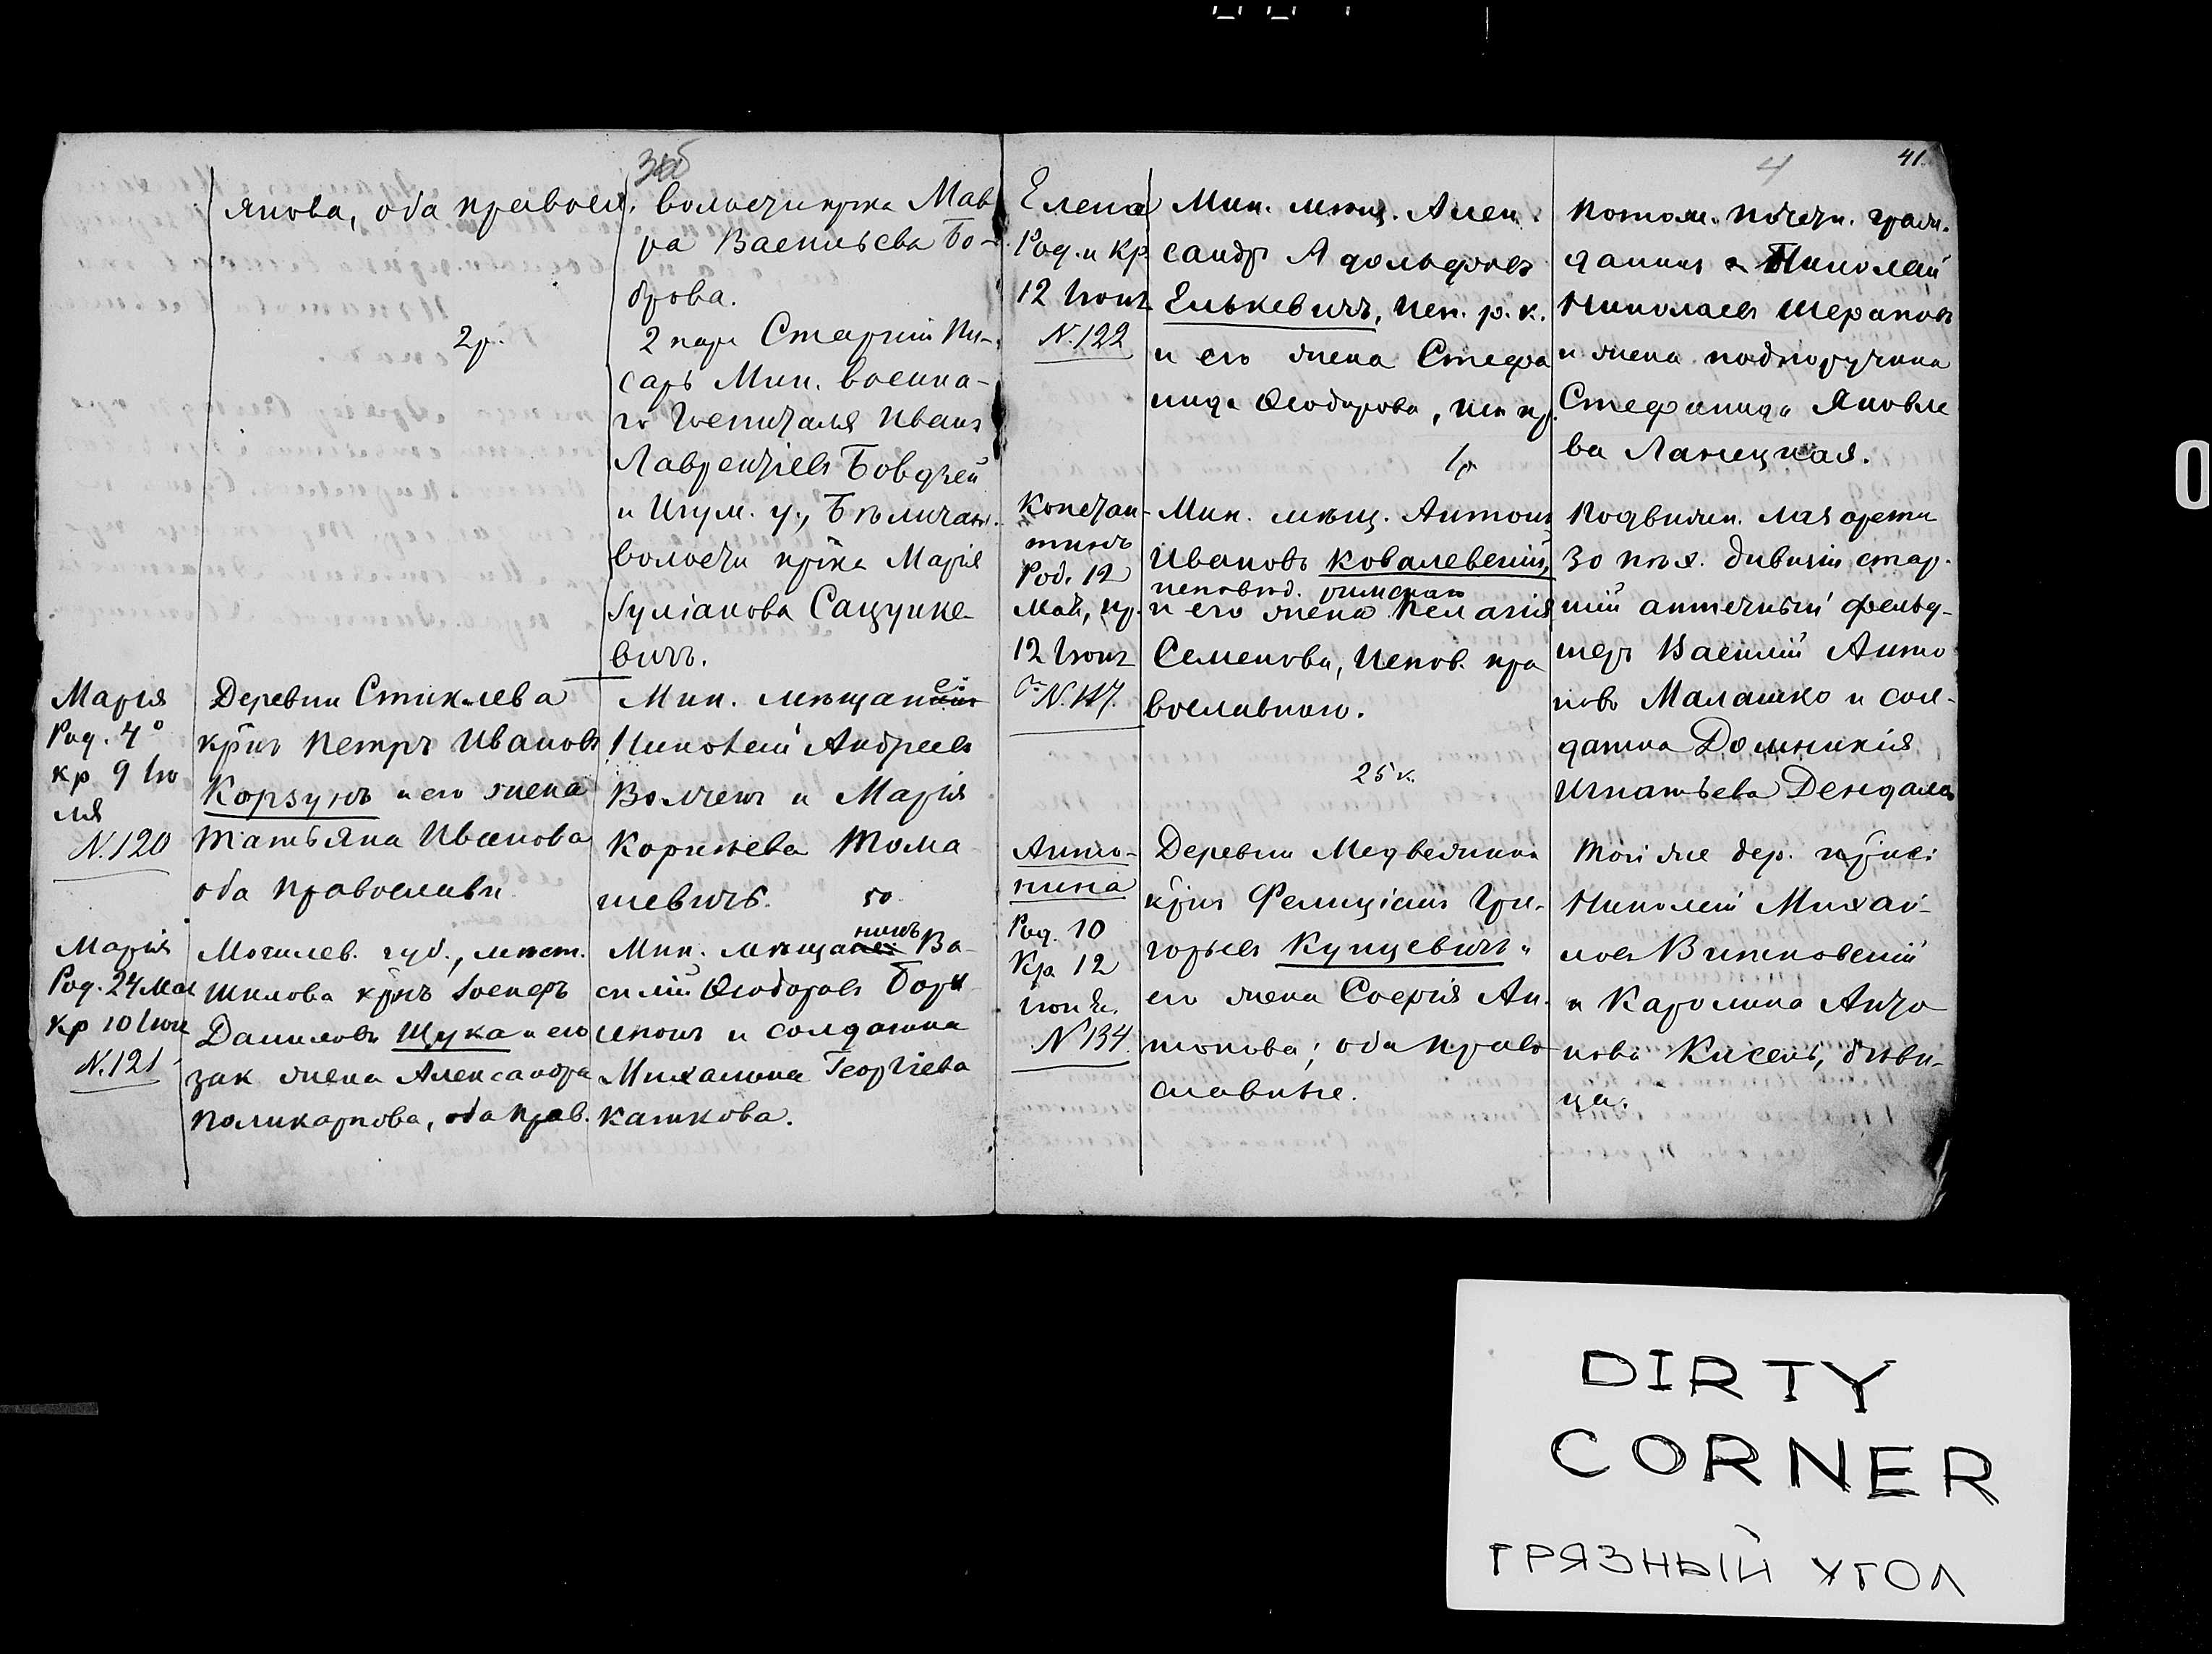 янова, оба правосл.
2 р.
волости крка Мав
ра Васильева Бо-
брова.
2 пара Старший Пи-
сарь Мин. военна-
го Госпиталя Иванъ
Лаврентіевъ Бовдзей
и Игум. у., Бѣличан.
волости крка Марія
Іуліанова Сацукке-
вичъ.
Марія
Род. 4
кр 9 Iю
ля
N. 120
Деревни Стиклева
крнъ Петръ Ивановъ
Корзунъ и его жена
Татьяна Иванова
оба православн
Мин. мѣщане
Николай Андреевъ
Волчекъ и Марія
Корнѣева Тома
шевичъ. 50
Марія
Род. 24 Мая
Кр 10 Iюн
N. 121
Могилев. губ., мѣст.
Шклова крнъ Iосифъ
Даниловъ Щука и его
зак жена Александра
Поликарпова, оба прав.
Мин. мѣщанинъ Ва-
силій Ѳеодоровъ Бори
сенокъ и солдатка
Михалина Георгіева
Каткова.
41.
4
Елена
Род. и Кр
12 Iюня
N. 122
Мин. мѣщ. Алек
сандръ Адольфовъ
Елькевичъ, исп. р. к.
и его жена Стефа
нида Ѳеодорова, исп пр.
1 р
Потом. почетн. граж.
данинъ Николай
Николаевъ Шерапов
и жена подпоручика
Стефанида Яковле
ва Ланецкая.
Констан-
тинъ
Род. 12
Мая, кр.
12 Iюня
N. 117.
Мин. мѣщ. Антонъ
Ивановъ Ковалевскій,
исповѣд. римскаго
и его жена Пелагія
Семенова, Испов. пра
вославнаго.
25 к.
Подвижн. лазарета
30 пѣх. дивизіи стар.
шій аптечный фельд-
шеръ Василій Анто
новъ Малашко и сол-
датка Домникія
Игнатьева Дендалов
Анто-
нина
Род. 10
Кр 12
Iюня.
N 134.
Деревни Медвежина
крнъ Фелиціанъ Гри-
горьевъ Купцевичъ и
его жена Софія Ан-
тонова; оба право
славные.
Той же дер. крне:
Николай Михай-
ловъ Витковскій
и Каролина Анто
нова Кисель, дѣви-
ца.
DIRTY
CORNER
ГРЯЗНЫЙ УГОЛ